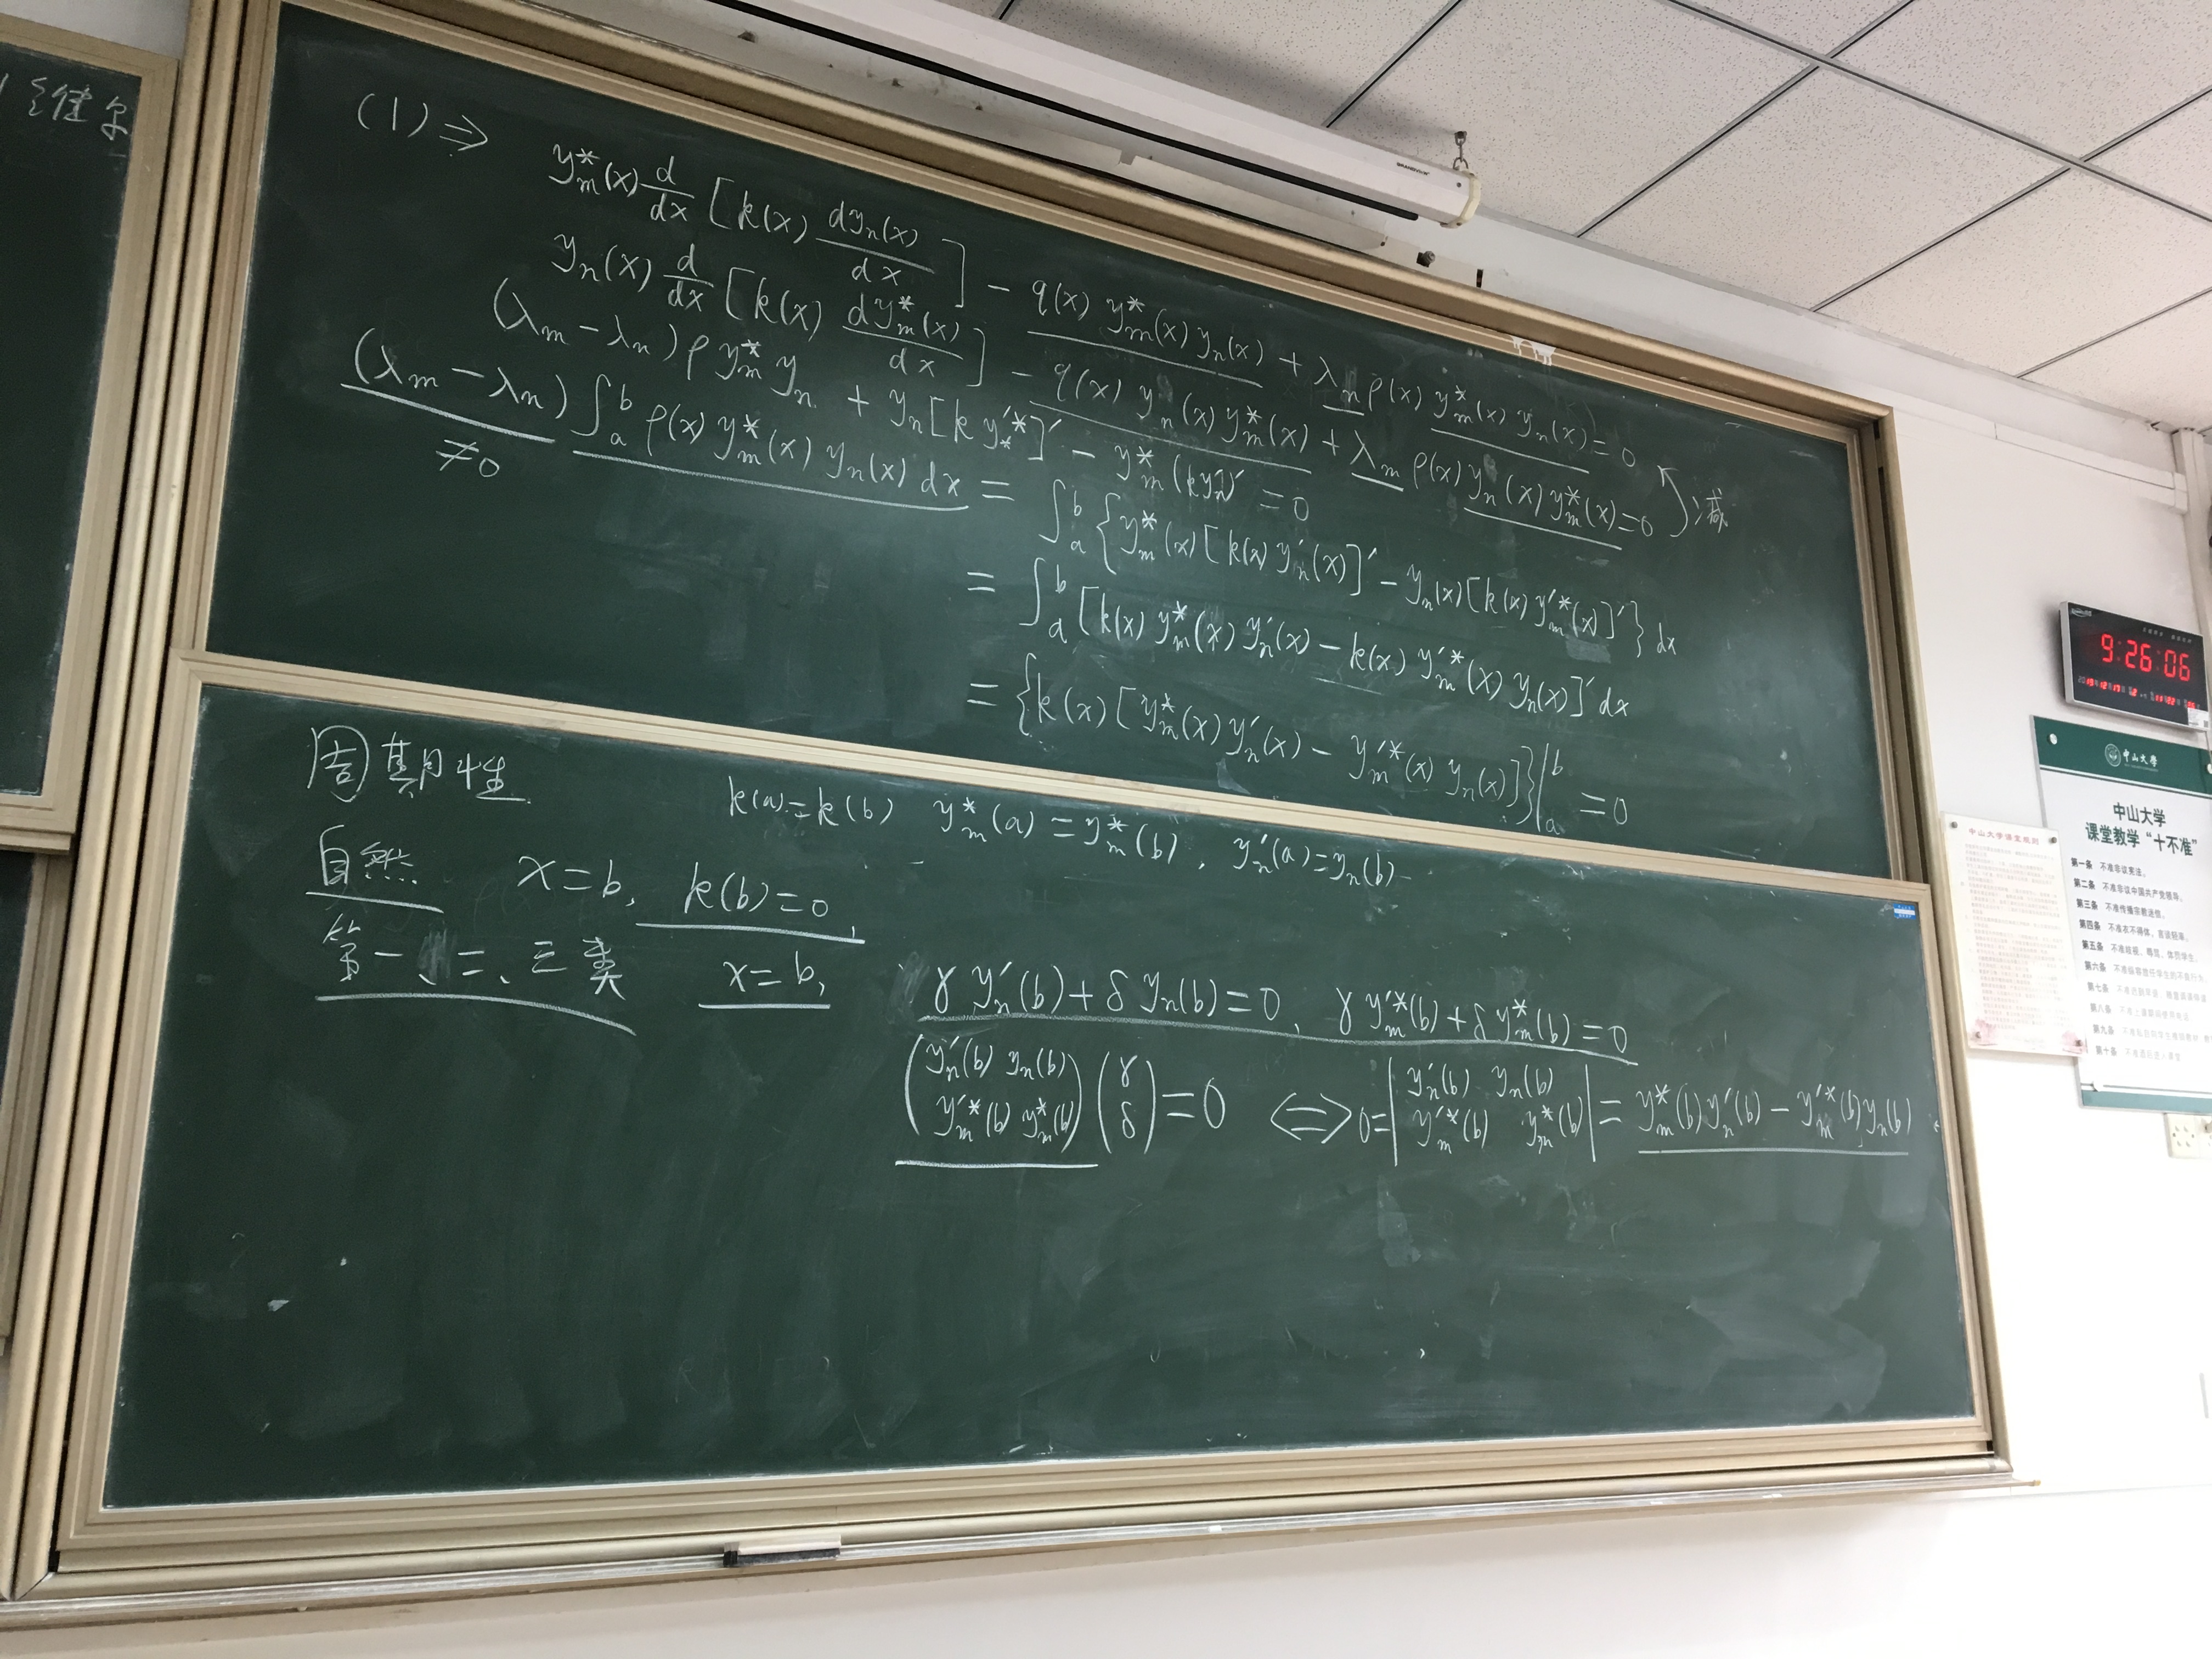 (1) ⇒
y*ₘ(x) d/dx [k(x) dyₙ(x)/dx] − q(x) y*ₘ(x) yₙ(x) + λₙ ρ(x) y*ₘ(x) yₙ(x) = 0
yₙ(x) d/dx [k(x) dy*ₘ(x)/dx] − q(x) yₙ(x) y*ₘ(x) + λₘ ρ(x) yₙ(x) y*ₘ(x) = 0 减
(λₘ − λₙ) ρ y*ₘ yₙ + yₙ[k y′*]′ − y*ₘ (k y′ₙ)′ = 0
(λₘ − λₙ) ∫ₐᵇ ρ(x) y*ₘ(x) yₙ(x) dx = ∫ₐᵇ {y*ₘ(x) [k(x) y′ₙ(x)]′ − yₙ(x) [k(x) y′*ₘ(x)]′} dx
≠0
= ∫ₐᵇ [k(x) y*ₘ(x) y′ₙ(x) − k(x) y′*ₘ(x) yₙ(x)]′ dx
= {k(x) [y*ₘ(x) y′ₙ(x) − y′*ₘ(x) yₙ(x)]}|ₐᵇ = 0
周期性
k(a) = k(b) y*ₘ(a) = y*ₘ(b), y′ₙ(a) = yₙ(b)
自然 x = b, k(b) = 0,
第一、二、三类 x = b, γ y′ₙ(b) + δ yₙ(b) = 0, γ y′*ₘ(b) + δ y*ₘ(b) = 0
(y′ₙ(b) yₙ(b)
y′*ₘ(b) y*ₘ(b)) (γ
δ) = 0 ⇔ 0 = |y′ₙ(b) yₙ(b)
y′*ₘ(b) y*ₘ(b)| = y*ₘ(b) y′ₙ(b) − y′*ₘ(b) yₙ(b)
9:26:06
中山大学
中山大学
课堂教学“十不准”
第一条 不准非议宪法。
第二条 不准非议中国共产党领导。
第三条 不准传播宗教迷信。
第四条 不准衣不得体、言谈轻浮。
第五条
第六条
第七条
第八条
第九条
第十条
中山大学课堂规则